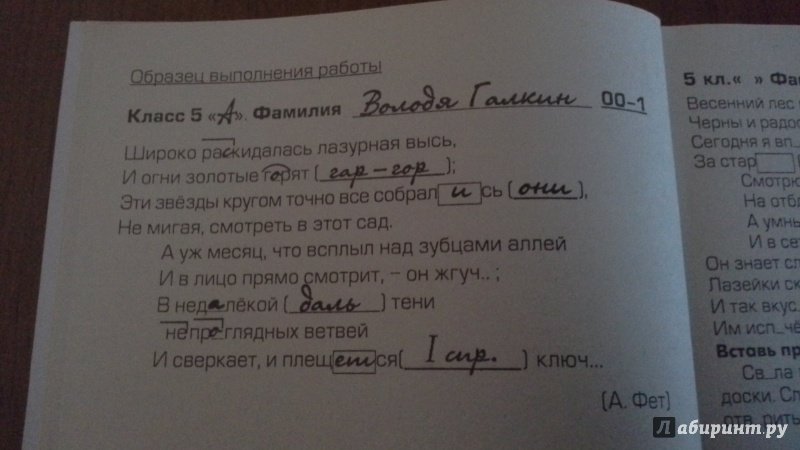 Образец выполнения работы
Класс 5 «А». Фамилия Володя Галкин 00-1
Широко раскидалась лазурная высь,
И огни золотые горят (гар-гор);
Эти звёзды кругом точно все собрал и сь (они),
Не мигая, смотреть в этот сад.
А уж месяц, что всплыл над зубцами аллей
И в лицо прямо смотрит, – он жгуч.. ;
В недалёкой (даль) тени
непроглядных ветвей
И сверкает, и плещется (I спр.) ключ...
(А. Фет)
5 кл.« »
Весенний лес
Черны и
Сегодня я вп_
За стар
На
А
И в
Он знает
Лазейки
И так вкус
Им исп_
Вставь
Св_ла
доски.
отв_рить
Лабиринт.ру